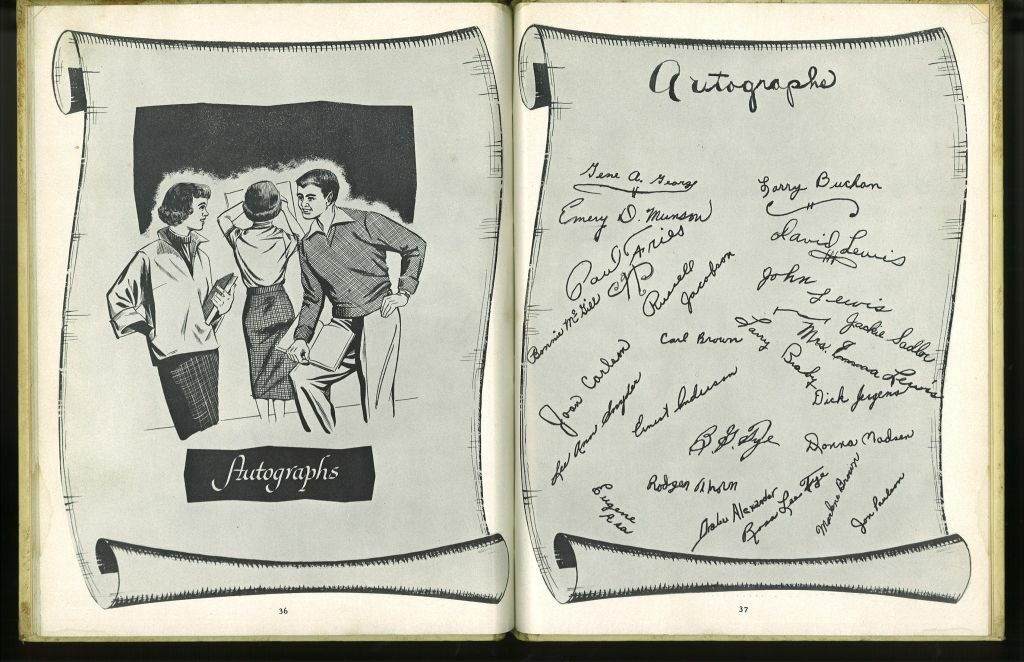 Autographs
36
Autographs
Gene A. George
Larry Buchan
Emery D. Munson
David Lewis
Paul Fries
John Lewis
Bonnie McGill
Russell Jacobson
Jackie Sadler
Carl Brown
Larry Brady
Mrs. Emma Lewis
Joan Carlson
Dick Jurgens
Lee Ann Snyder
Ernest Anderson
B. G. Tye
Donna Madsen
Rodger Thorn
Eugene Rea
Alexander
Rosa Lee Frye
Marlene Brown
Jon Paulson
37